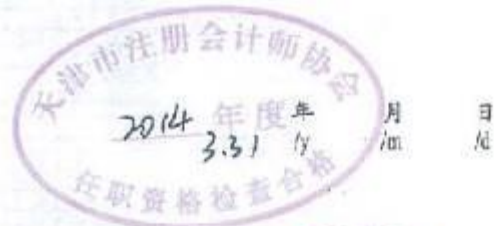 天津市注册会计师协会
2014 年度 年 月 日
3.31 /y /m /d
任职资格检查合格